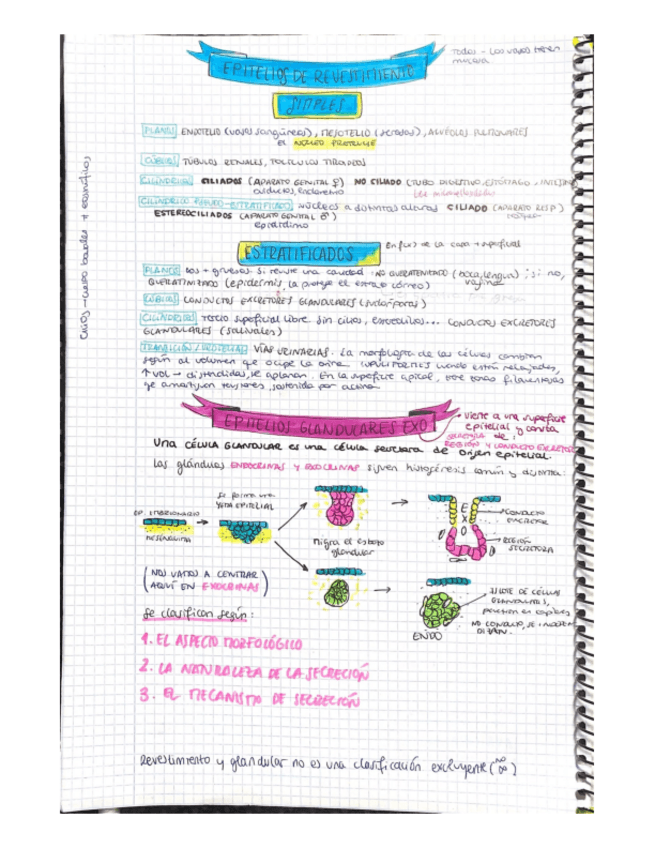 Todos - Los vasos tienen
mucosa
EPITELIOS DE REVESTIMIENTO
SIMPLES
PLANOS ENDOTELIO (vasos sangúineos), MESOTELIO (serosas), ALVÉOLOS PULMONARES
el NÚCLEO PROTRUYE
CÚBICOS TÚBULOS RENALES, FOLÍCULOS TIROIDEOS
CILÍNDRICOS CILIADOS (APARATO GENITAL ♀) NO CILIADO (TUBO DIGESTIVO, ESTÓMAGO, INTESTINO
oviductos, endometrio
CILÍNDRICO PSEUDO-ESTRATIFICADO núcleos a distintas alturas CILIADO (APARATO RESP)
ESTEREOCILIADOS (APARATO GENITAL ♂)
epidídimo
cilios → cuerpo basales +
ESTRATIFICADOS
En func de la capa + superficial
PLANOS Los + gruesos. Si reviste una cavidad: NO QUERATINIZADO (boca, lengua); si no,
vagina
QUERATINIZADO (epidermis, la protege el estrato córneo)
CÚBICOS CONDUCTOS EXCRETORES GLANDULARES (sudoríparas)
CILÍNDRICOS Tercio superficial libre sin cilios, estereocilios... CONDUCTOS EXCRETORES
GLANDULARES (salivales)
TRANSICIÓN / UROTELIAL VÍAS URINARIAS. La morfología de las células cambian
según al volumen que ocupe la orina. cuando están relajadas,
↑ VOL → distendidas, se aplanan. En la superficie apical, que
se amortiguan tensiones, sostenida por actina.
EPITELIOS GLANDULARES EXO
Viene a una superficie
epitelial y consta
de:
REGIÓN Y CONDUCTO EXCRETOR
Una CÉLULA GLANDULAR es una célula secretora de origen epitelial.
Las glándulas ENDOCRINAS Y EXOCRINAS siguen histogénesis común y distinta:
EP. EMBRIONARIO
MESÉNQUIMA
Se forma una
YEMA EPITELIAL
Migra el esbozo
glandular
EXO
CONDUCTO
EXCRETOR
REGIÓN
SECRETORA
(NOS VAMOS A CENTRAR
AQUÍ EN EXOCRINAS)
ENDO
ISLOTE DE CÉLULAS
GLANDULARES,
NO CONDUCTO, SE
Se clasifican según:
1. EL ASPECTO MORFOLÓGICO
2. LA NATURALEZA DE LA SECRECIÓN
3. EL MECANISMO DE SECRECIÓN
Revestimiento y glandular no es una clasificación excluyente